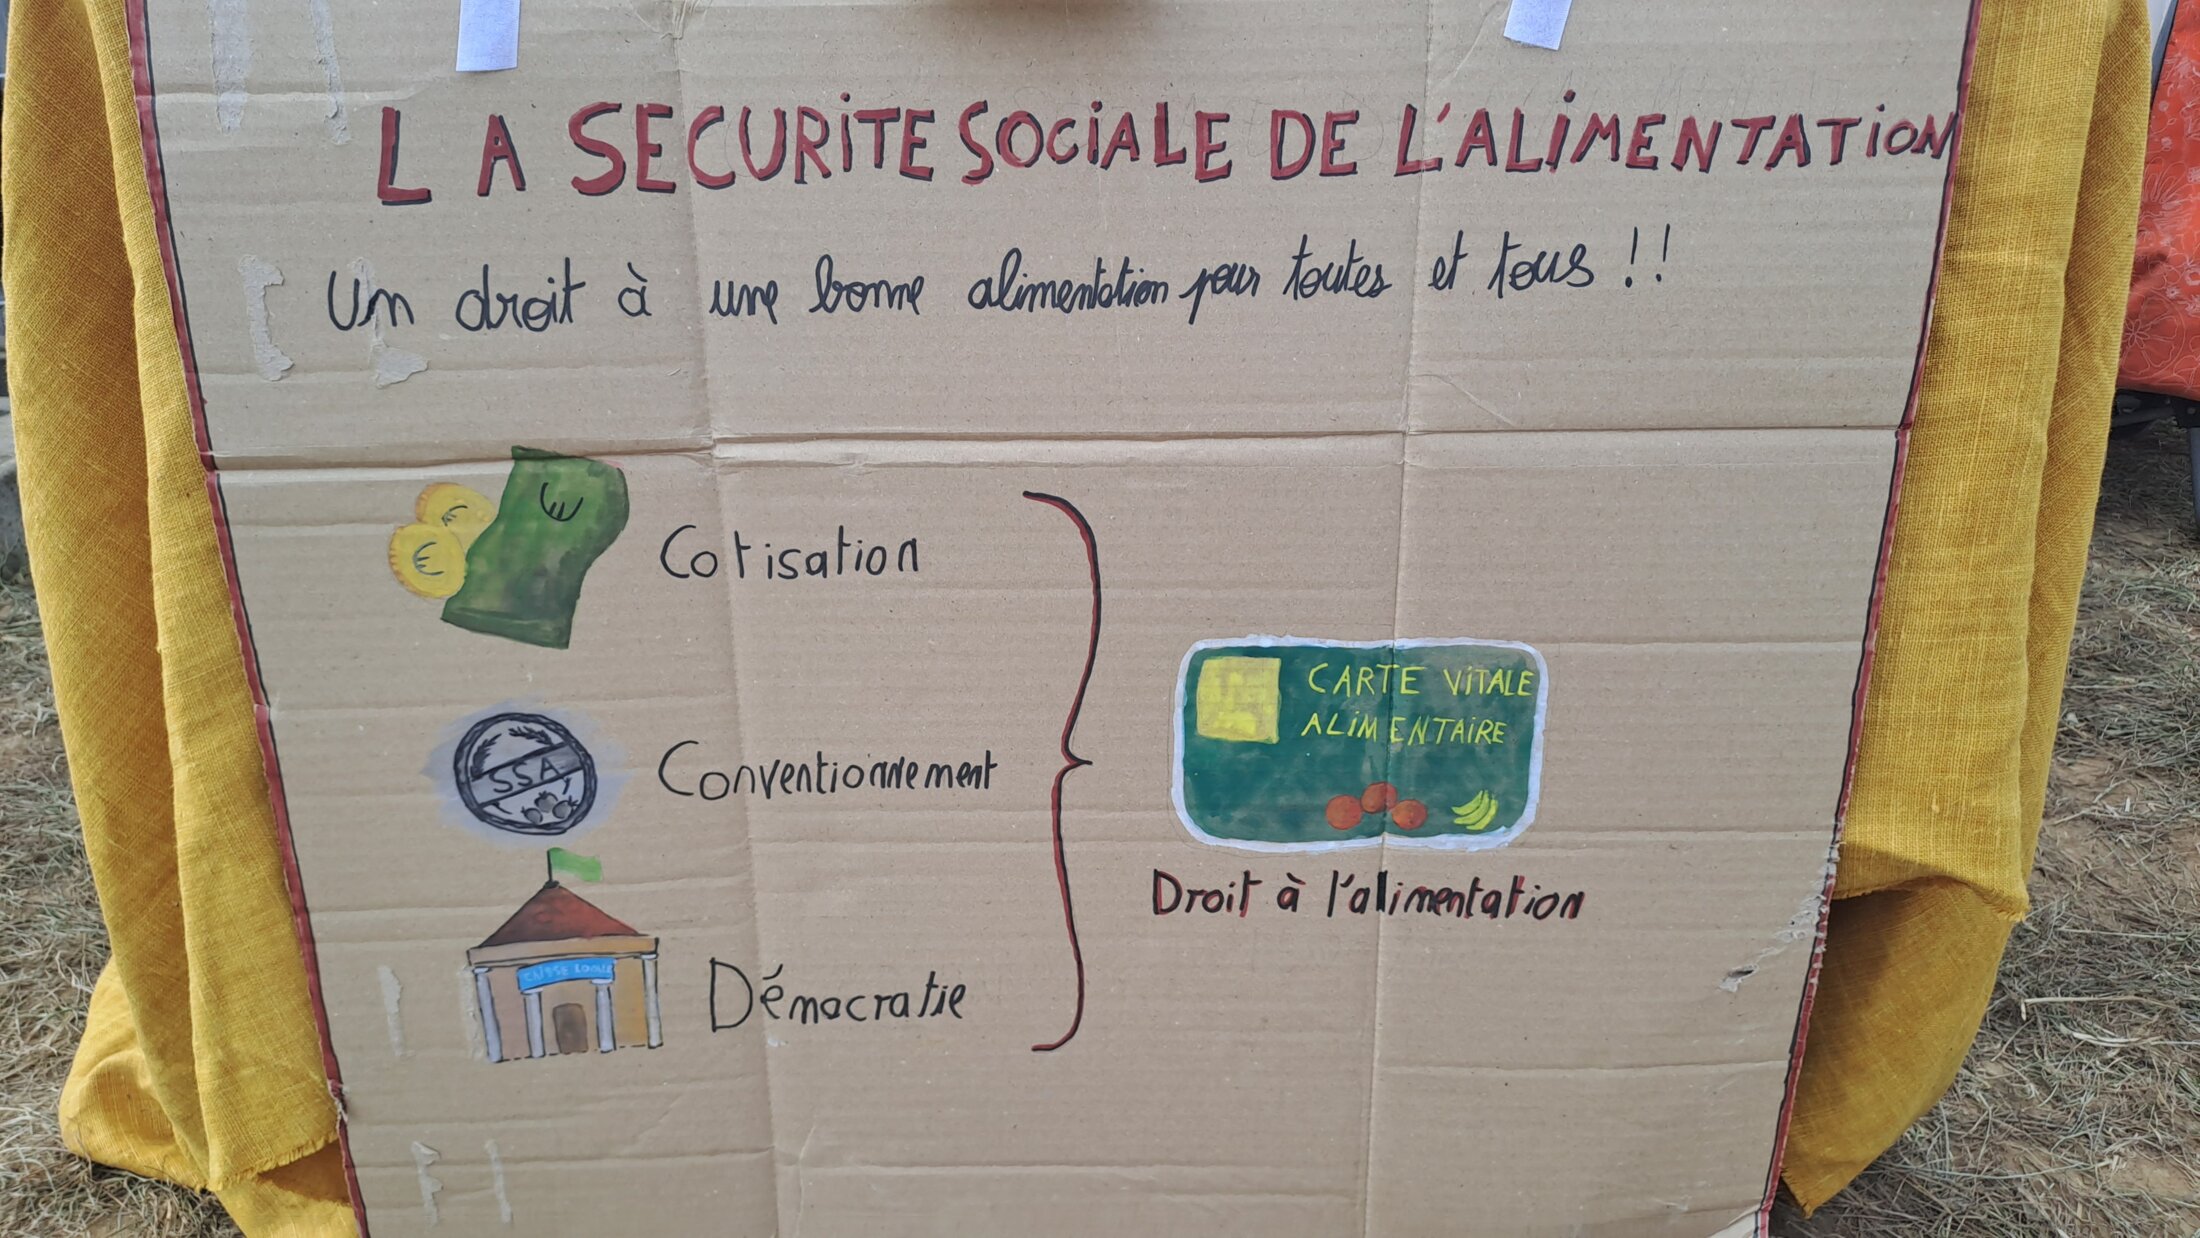 LA SECURITE SOCIALE DE L'ALIMENTATION
Un droit à une bonne alimentation pour toutes et tous !!
€
€
€
Cotisation
SSA
Conventionnement
CAISSE LOCALE
Démocratie
CARTE VITALE
ALIMENTAIRE
Droit à l'alimentation